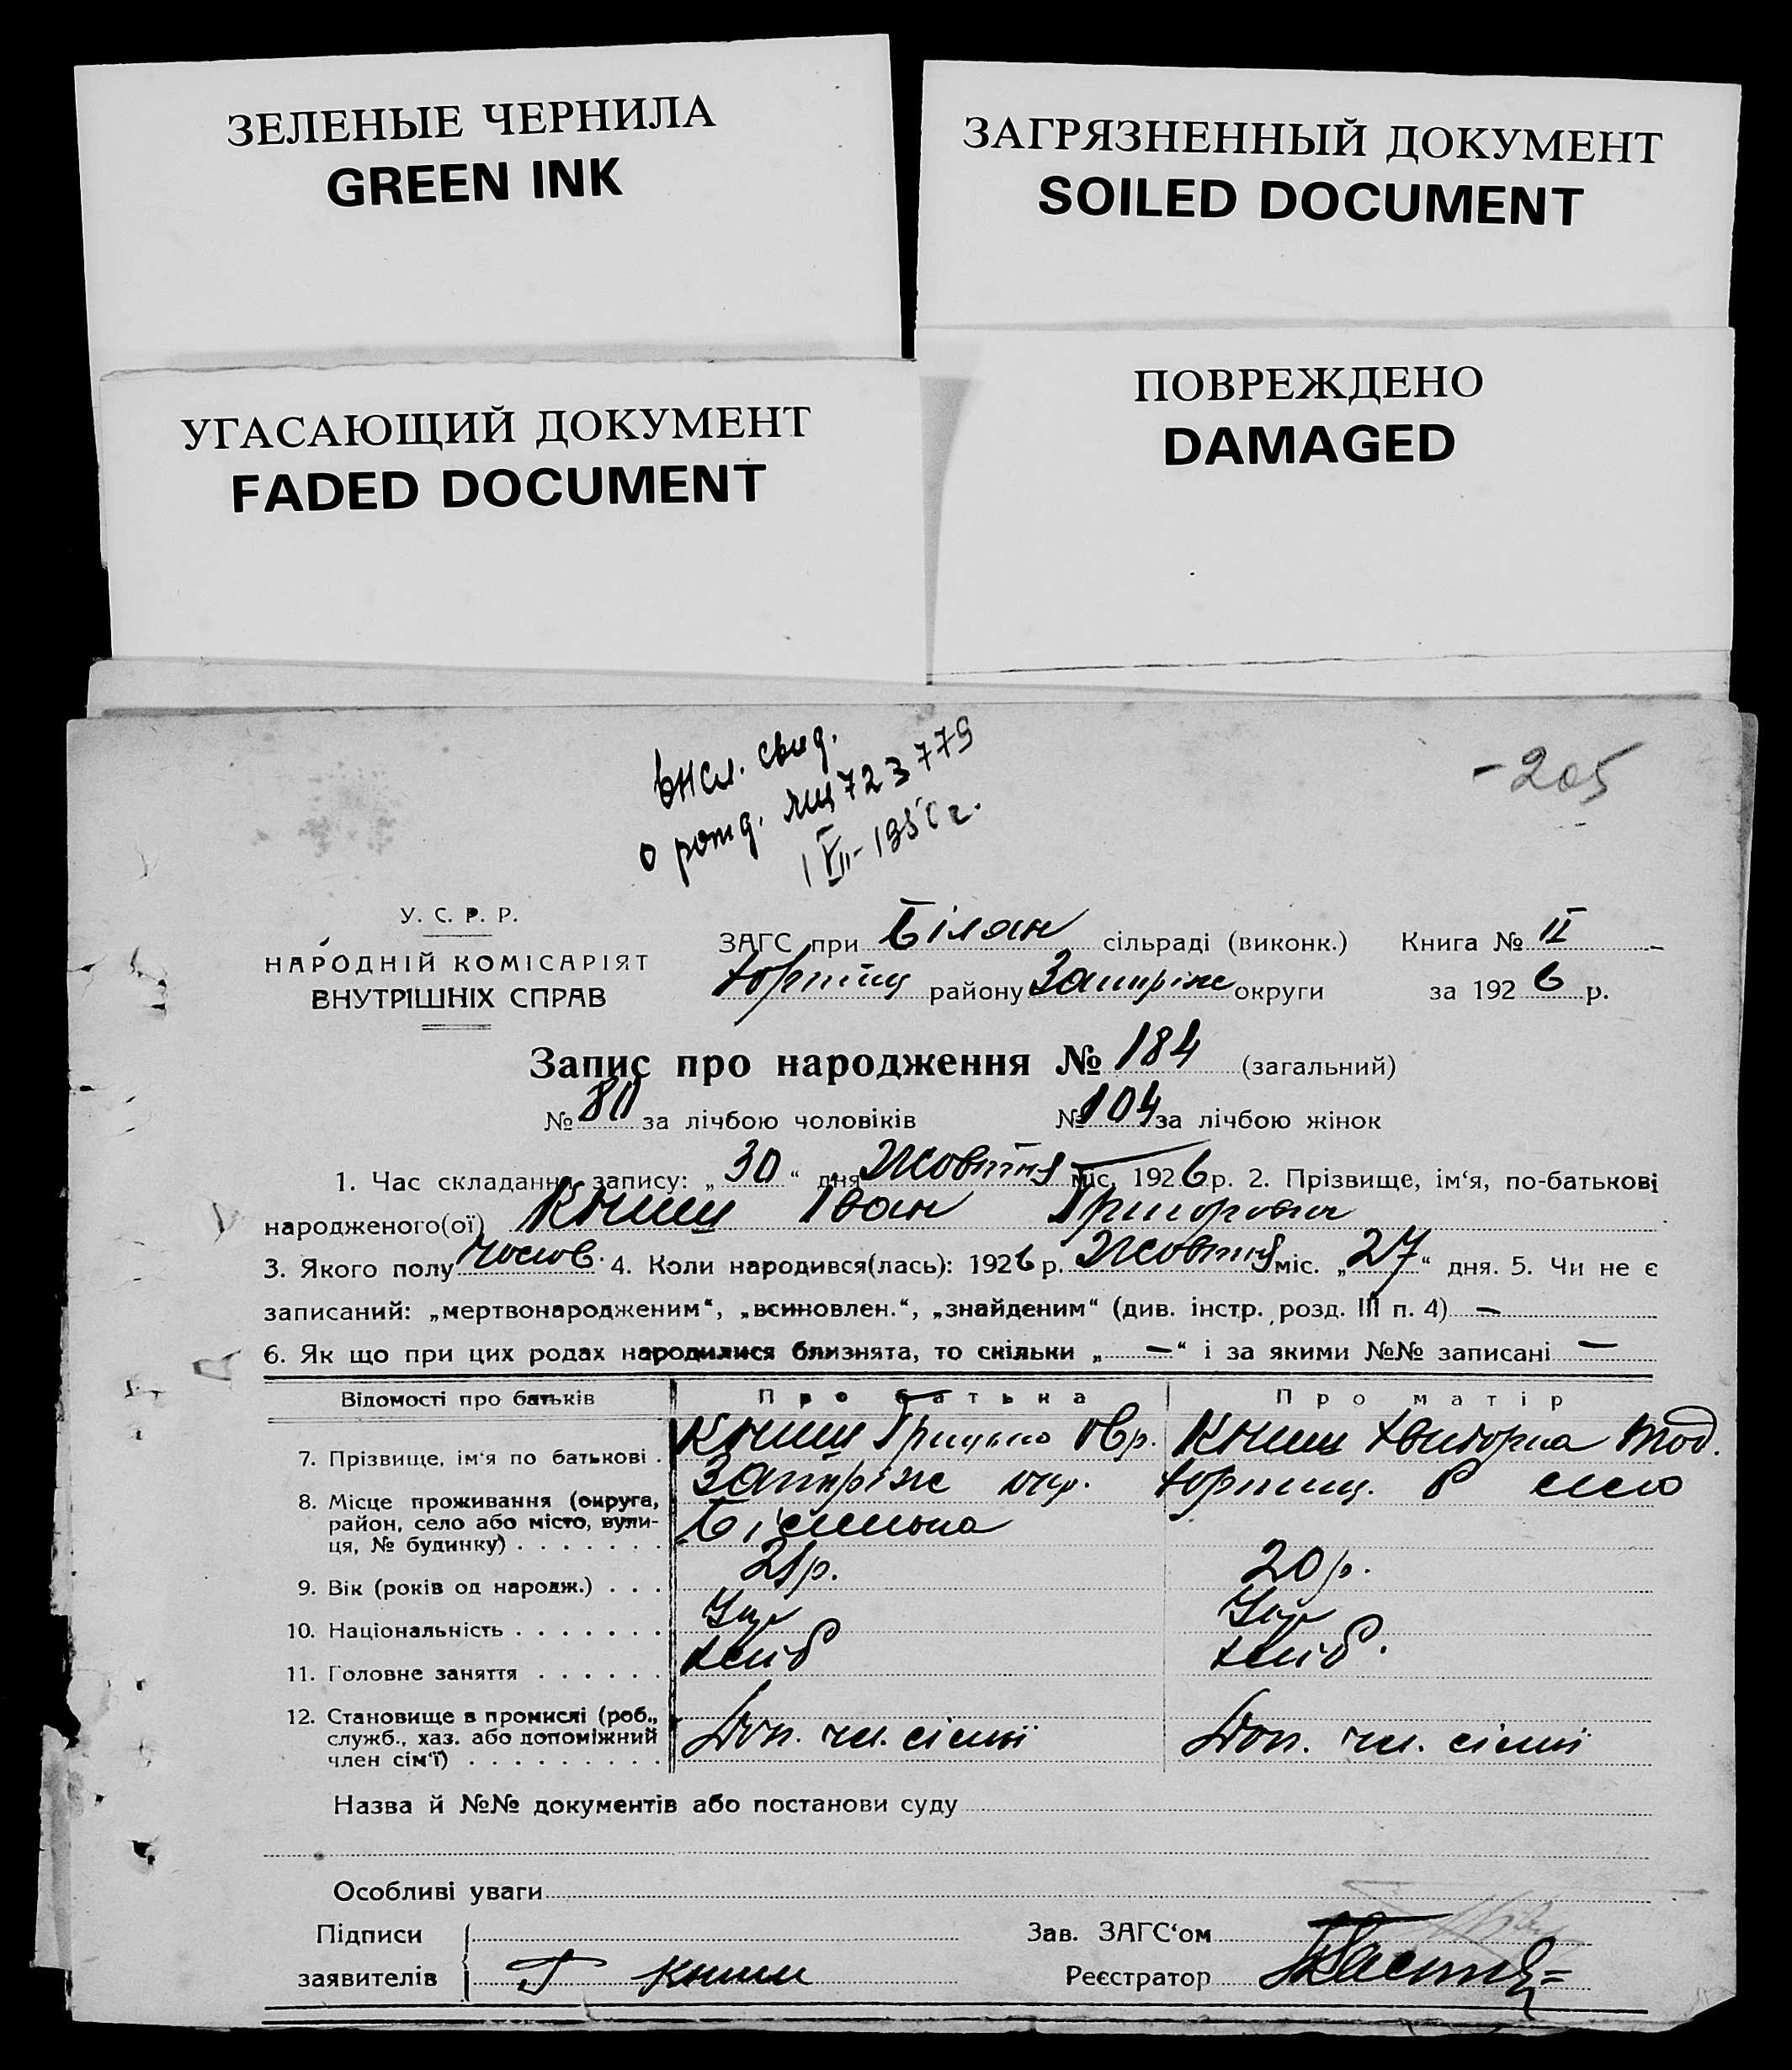 ЗЕЛЕНЫЕ ЧЕРНИЛА
GREEN INK
ЗАГРЯЗНЕННЫЙ ДОКУМЕНТ
SOILED DOCUMENT
УГАСАЮЩИЙ ДОКУМЕНТ
FADED DOCUMENT
ПОВРЕЖДЕНО
DAMAGED
- 205
свид.
о рожд. 723779
У. С. Р. Р.
НАРОДНІЙ КОМІСАРІЯТ
ВНУТРІШНІХ СПРАВ
ЗАГС при Білан сільраді (виконк.) Книга № II
Хортиц району Запріж округи за 1926 р.
Запис про народження № 184 (загальний)
№ 80 за лічбою чоловіків № 104 за лічбою жінок
1. Час складання запису: „30“ дня Жовтня міс. 1926 р. 2. Прізвище, ім‘я, по-батькові
народженого(ої) Книш Іван Григорович
3. Якого полу чолов. 4. Коли народився(лась): 1926 р. Жовтня міс. „27“ дня. 5. Чи не є
записаний: „мертвонародженим“, „всиновлен.“, „знайденим“ (див. інстр. розд. III п. 4) —
6. Як що при цих родах народилися близнята, то скільки „—“ і за якими №№ записані —
Відомості про батьків Про батька Про матір
7. Прізвище, ім‘я по батькові . Книш Грицько Овр. Книш Хвитория Тод.
8. Місце проживання (округа, Запріж окр. Хортиц. р село
район, село або місто, вули-
ця, № будинку) . . . . . . .
9. Вік (років од народж.) . . . 21р. 20р.
10. Національність . . . . . . . Укр Укр
11. Головне заняття . . . . . . хліб хліб.
12. Становище в промислі (роб.,
служб., хаз. або допоміжний Доп. чл. сімї Доп. чл. сімї
член сім‘ї) . . . . . . . . .
Назва й №№ документів або постанови суду
Особливі уваги
Підписи Зав. ЗАГС‘ом
заявителів Г Книш Реєстратор